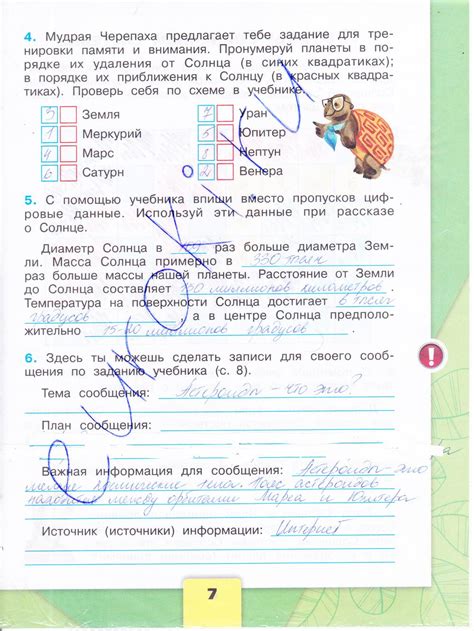 4. Мудрая Черепаха предлагает тебе задание для тре-
нировки памяти и внимания. Пронумеруй планеты в по-
рядке их удаления от Солнца (в синих квадратиках);
в порядке их приближения к Солнцу (в красных квадра-
тиках). Проверь себя по схеме в учебнике.
3 Земля 7 Уран
1 Меркурий 5 Юпитер
4 Марс 8 Нептун
6 Сатурн 2 Венера
5. С помощью учебника впиши вместо пропусков циф-
ровые данные. Используй эти данные при рассказе
о Солнце.
Диаметр Солнца в раз больше диаметра Зем-
ли. Масса Солнца примерно в 330 тысяч
раз больше массы нашей планеты. Расстояние от Земли
до Солнца составляет 150 миллионов километров.
Температура на поверхности Солнца достигает 6 тысяч
градусов, а в центре Солнца предполо-
жительно 15-20 миллионов градусов.
6. Здесь ты можешь сделать записи для своего сооб-
щения по заданию учебника (с. 8).
Тема сообщения: Астероиды - что это?
План сообщения:
Важная информация для сообщения: Астероиды - это
мелкие космические тела. Пояс астероидов
находится между орбитами Марса и Юпитера
Источник (источники) информации: Интернет
7